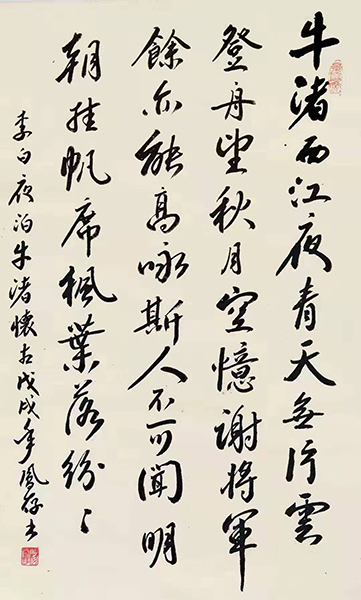 牛渚西江夜青天無片雲
登舟望秋月空憶謝將軍
餘亦能高咏斯人不可聞明
朝挂帆席楓葉落紛々
李白夜泊牛渚懷古戊戌年風存书